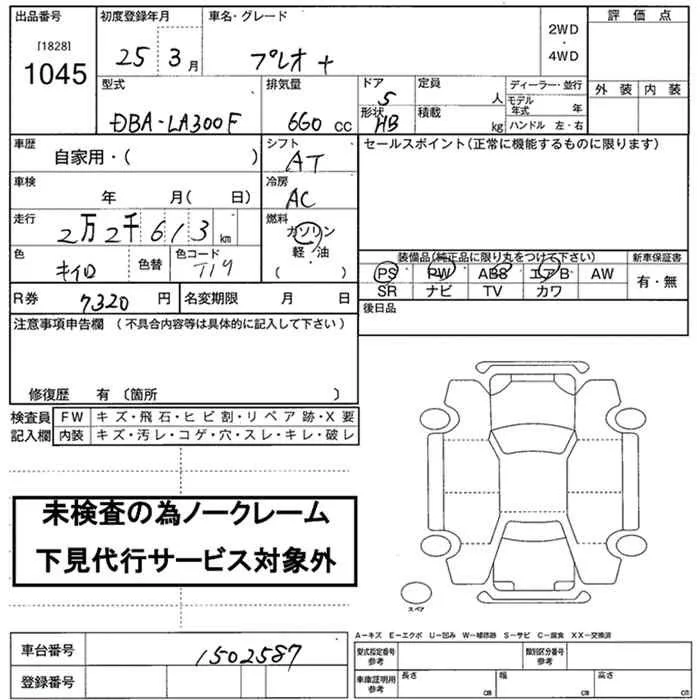 出品番号 初度登録年月 車名・グレード 評価点
[1828]
1045
25 3月 プレオ+
2WD
・
4WD
型式 排気量 ドア 定員 ディーラー・並行 外装 内装
DBA-LA300F 660 cc 5 人 モデル年式 年
形状 HB 積載 kg ハンドル 左・右
車歴 自家用・( ) シフト AT セールスポイント(正常に機能するものに限ります)
車検 年 月( 日) 冷房 AC
走行 2万2千613km 燃料 ガソリン
軽・油
( )
色 キイロ 色替 色コード
装備品(純正品に限り丸をつけて下さい) 新車保証書
PS PW ABS エアB AW 有・無
SR ナビ TV カワ
R券 7320円 名変期限 月 日 後日品
注意事項申告欄 (不具合内容等は具体的に記入して下さい)
修復歴 有 〔箇所 〕
検査員 FW キズ・飛石・ヒビ割・リペア跡・X要
記入欄 内装 キズ・汚レ・コゲ・穴・スレ・キレ・破レ
未検査の為ノークレーム
下見代行サービス対象外
スペア
A-キズ E-エクボ U-凹み W-補修跡 S-サビ C-腐食 XX-交換済
車台番号 1502587 型式指定番号 参考 類別区分番号 参考
登録番号 車庫証明用 参考 長さ cm 幅 cm 高さ cm